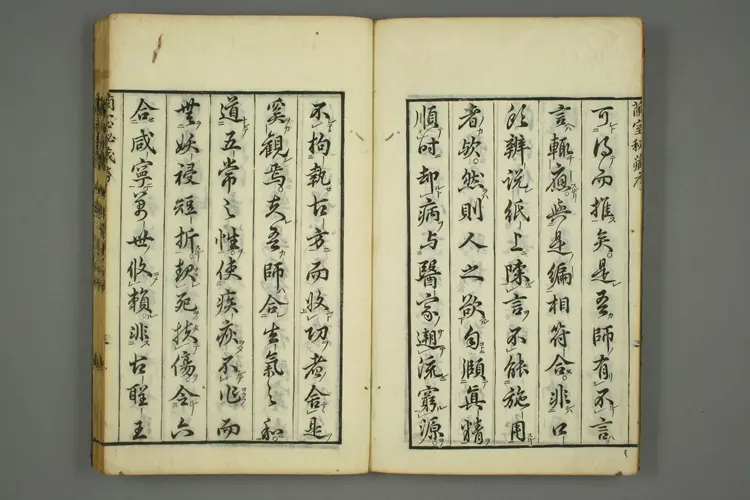 蘭室秘藏序
可得而推矣。是吾師有不言
言輒應與是編相符合。非口
所辨説紙上陳言不能施用
者歟。然則人之欲自頤真精
順時却病与醫家遡流窮源
不拘執古方而收功者舍是
奚觀焉。夫吾師合生氣之和
道五常之性。使疾疢不作而
無妖祲短折。救死扶傷。令六
合咸寧萬世攸賴。非古聖王
蘭室秘藏序